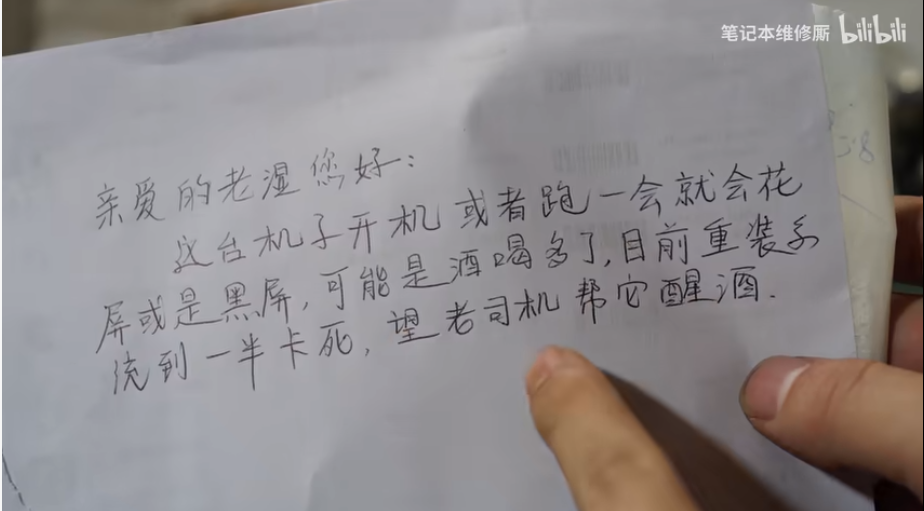 笔记本维修厮 bilibili
亲爱的老湿您好：
这台机子开机或者跑一会就会花
屏或是黑屏，可能是酒喝多了，目前重装系
统到一半卡死，望老司机帮它醒酒．